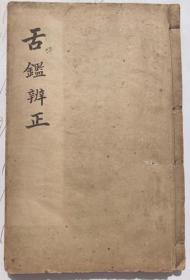 舌鑑辨正